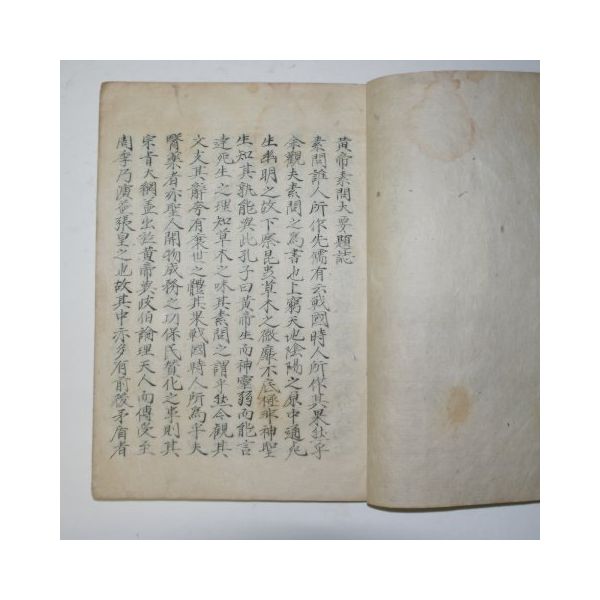 黃帝素問大要題誌
素問誰人所作先儒有云戰國時人所作其果然乎
余觀夫素問之爲書也上窮天地陰陽之原中通死
生幽明之故下察昆虫草木之微靡不底極非神聖
生知其孰能與此孔子曰黃帝生而神靈弱而能言
達死生之理知草木之味其素問之謂乎然今觀其
文支其辭夸有衰世之體其果戰國時人所爲乎夫
醫藥者亦聖人開物成務之功保民贊化之事則其
宗旨大綱盖出於黃帝與歧伯論理天人而傳受至
周季乃演益張皇之也故其中亦多有前後矛盾者